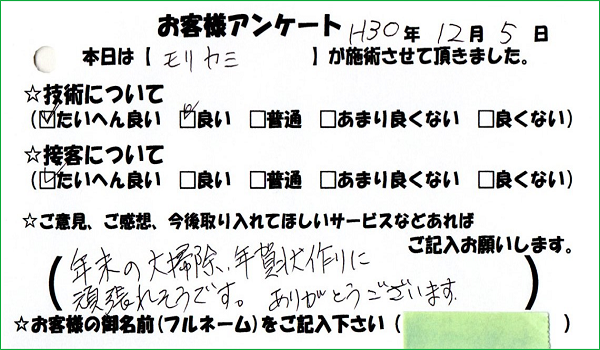 お客様アンケート H30年 12月 5日
本日は【 モリカミ 】が施術させて頂きました。
☆技術について
(☑たいへん良い ☑良い □普通 □あまり良くない □良くない)
☆接客について
(☑たいへん良い □良い □普通 □あまり良くない □良くない)
☆ご意見、ご感想、今後取り入れてほしいサービスなどあれば
ご記入お願いします。
(年末の大掃除、年賀状作りに
頑張れそうです。ありがとうございます)
☆お客様の御名前(フルネーム)をご記入下さい( )